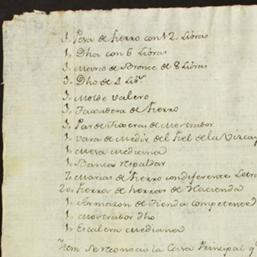 1. Pesa de hierro con 12 Libras
1. Dha con 6 Libras
1. Marco de Bronce de 8 Libras
1. Dho de 2 Lib.
1. Molde
1. de hierro
1. Par de de mostrador
1. Vara de Medir del fiel de la
1. Mesa mediana
1. respaldar
2. Marcas de hierro con diferentes Letras
20. hierros de herrar de Hacienda
1. Armazon de Tienda Competente
1. mostrador dho
1. Escalera mediana
Item se reconoció la Casa Principal q.